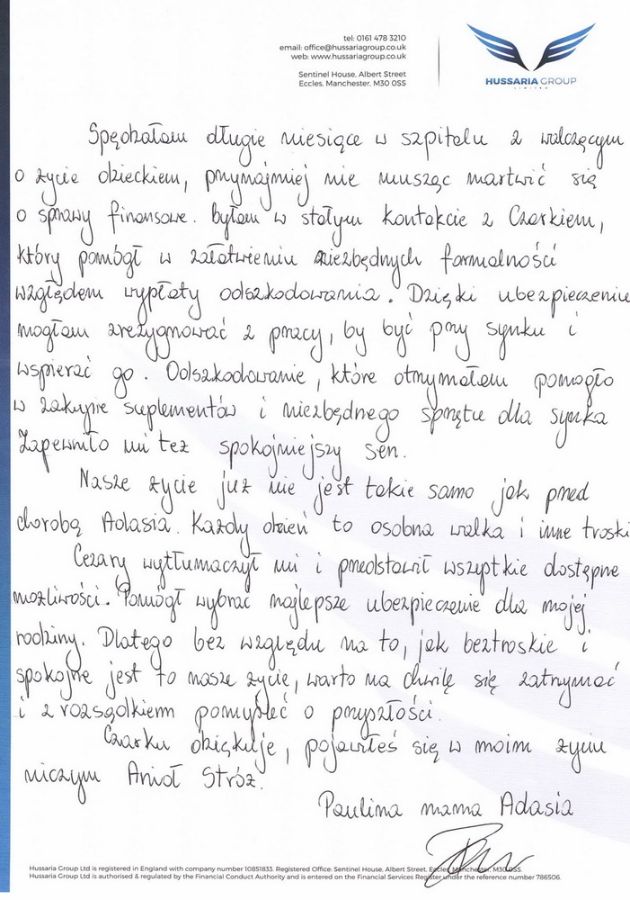 tel: 0161 478 3210
email: office@hussariagroup.co.uk
web: www.hussariagroup.co.uk
Sentinel House, Albert Street
Eccles, Manchester, M30 0SS
HUSSARIA GROUP
LIMITED
Spędzałam długie miesiące w szpitalu z walczącym
o życie dzieckiem, przynajmniej nie musząc martwić się
o sprawy finansowe. byłam w stałym kontakcie z Czarkiem,
który pomógł w załatwieniu niezbędnych formalności
względem wypłaty odszkodowania. Dzięki ubezpieczeniu
mogłam zrezygnować z pracy, by być przy synku i
wspierać go. Odszkodowanie, które otrzymałam pomogło
w zakupie suplementów i niezbędnego sprzętu dla synka
Zapewniło mi też spokojniejszy sen.
Nasze życie już nie jest takie samo jak przed
chorobą Adasia. Każdy dzień to osobna walka i inne troski
Cezary wytłumaczył mi i przedstawił wszystkie dostępne
możliwości. Pomógł wybrać najlepsze ubezpieczenie dla mojej
rodziny. Dlatego bez względu na to, jak beztroskie i
spokojne jest to nasze życie, warto na chwilę się zatrzymać
i z rozsądkiem pomyśleć o przyszłości.
Czarku dziękuje, pojawiłeś się w moim życiu
niczym Anioł Stróż.
Paulina mama Adasia
Hussaria Group Ltd is registered in England with company number 10851833. Registered Office: Sentinel House, Albert Street, Eccles, Manchester, M30 0SS.
Hussaria Group Ltd is authorised & regulated by the Financial Conduct Authority and is entered on the Financial Services Register under the reference number 786506.